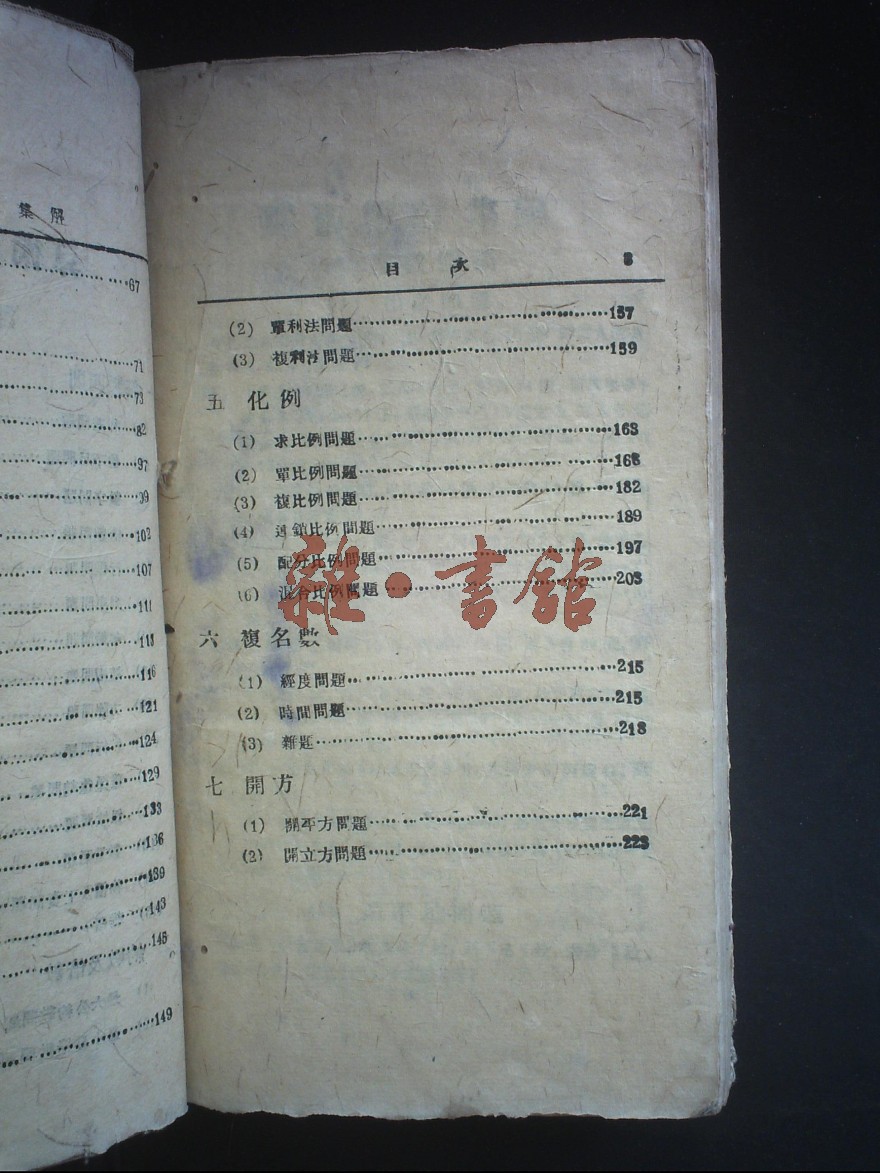 集解
67
71
73
82
97
99
102
107
111
113
116
121
124
129
133
136
139
143
145
149
目次 3
(2) 單利法問題 157
(3) 複利法問題 159
五 化例
(1) 求比例問題 163
(2) 單比例問題 166
(3) 複比例問題 182
(4) 連鎖比例問題 189
(5) 配分比例問題 197
(6) 混合比例問題 203
六 複名數
(1) 經度問題 215
(2) 時間問題 215
(3) 雜題 218
七 開方
(1) 開平方問題 221
(2) 開立方問題 223
雜·書館